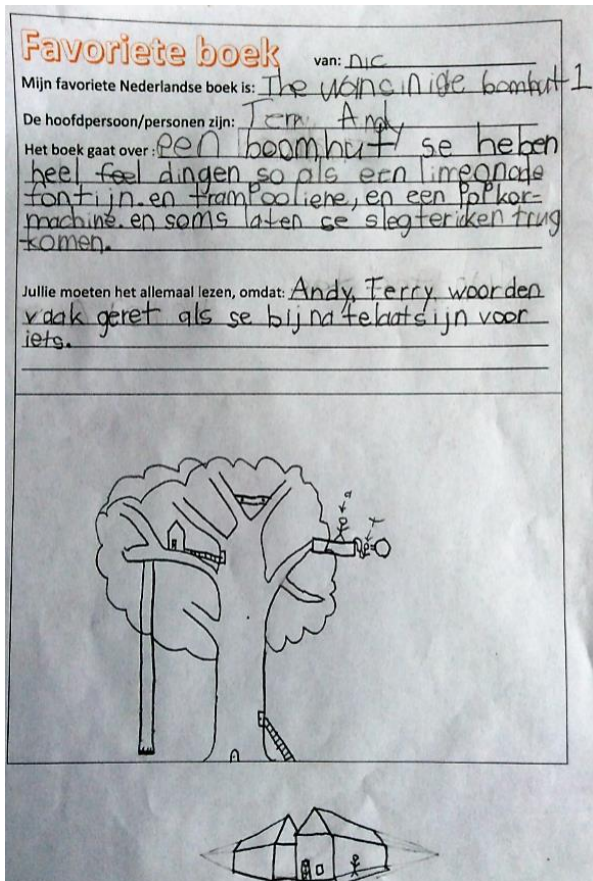 Favoriete boek van: nic
Mijn favoriete Nederlandse boek is: The wancinige bomhut 1
De hoofdpersoon/personen zijn: Terry Andy
Het boek gaat over: een boomhut se heben
heel feel dingen so als een limeonade
fontijn. en trampooliene, en een Popkor-
machine. en soms laten se slegterieken trug
komen.
Jullie moeten het allemaal lezen, omdat: Andy, Terry woorden
vaak geret als se bijna telaat sijn voor
iets.
a
t